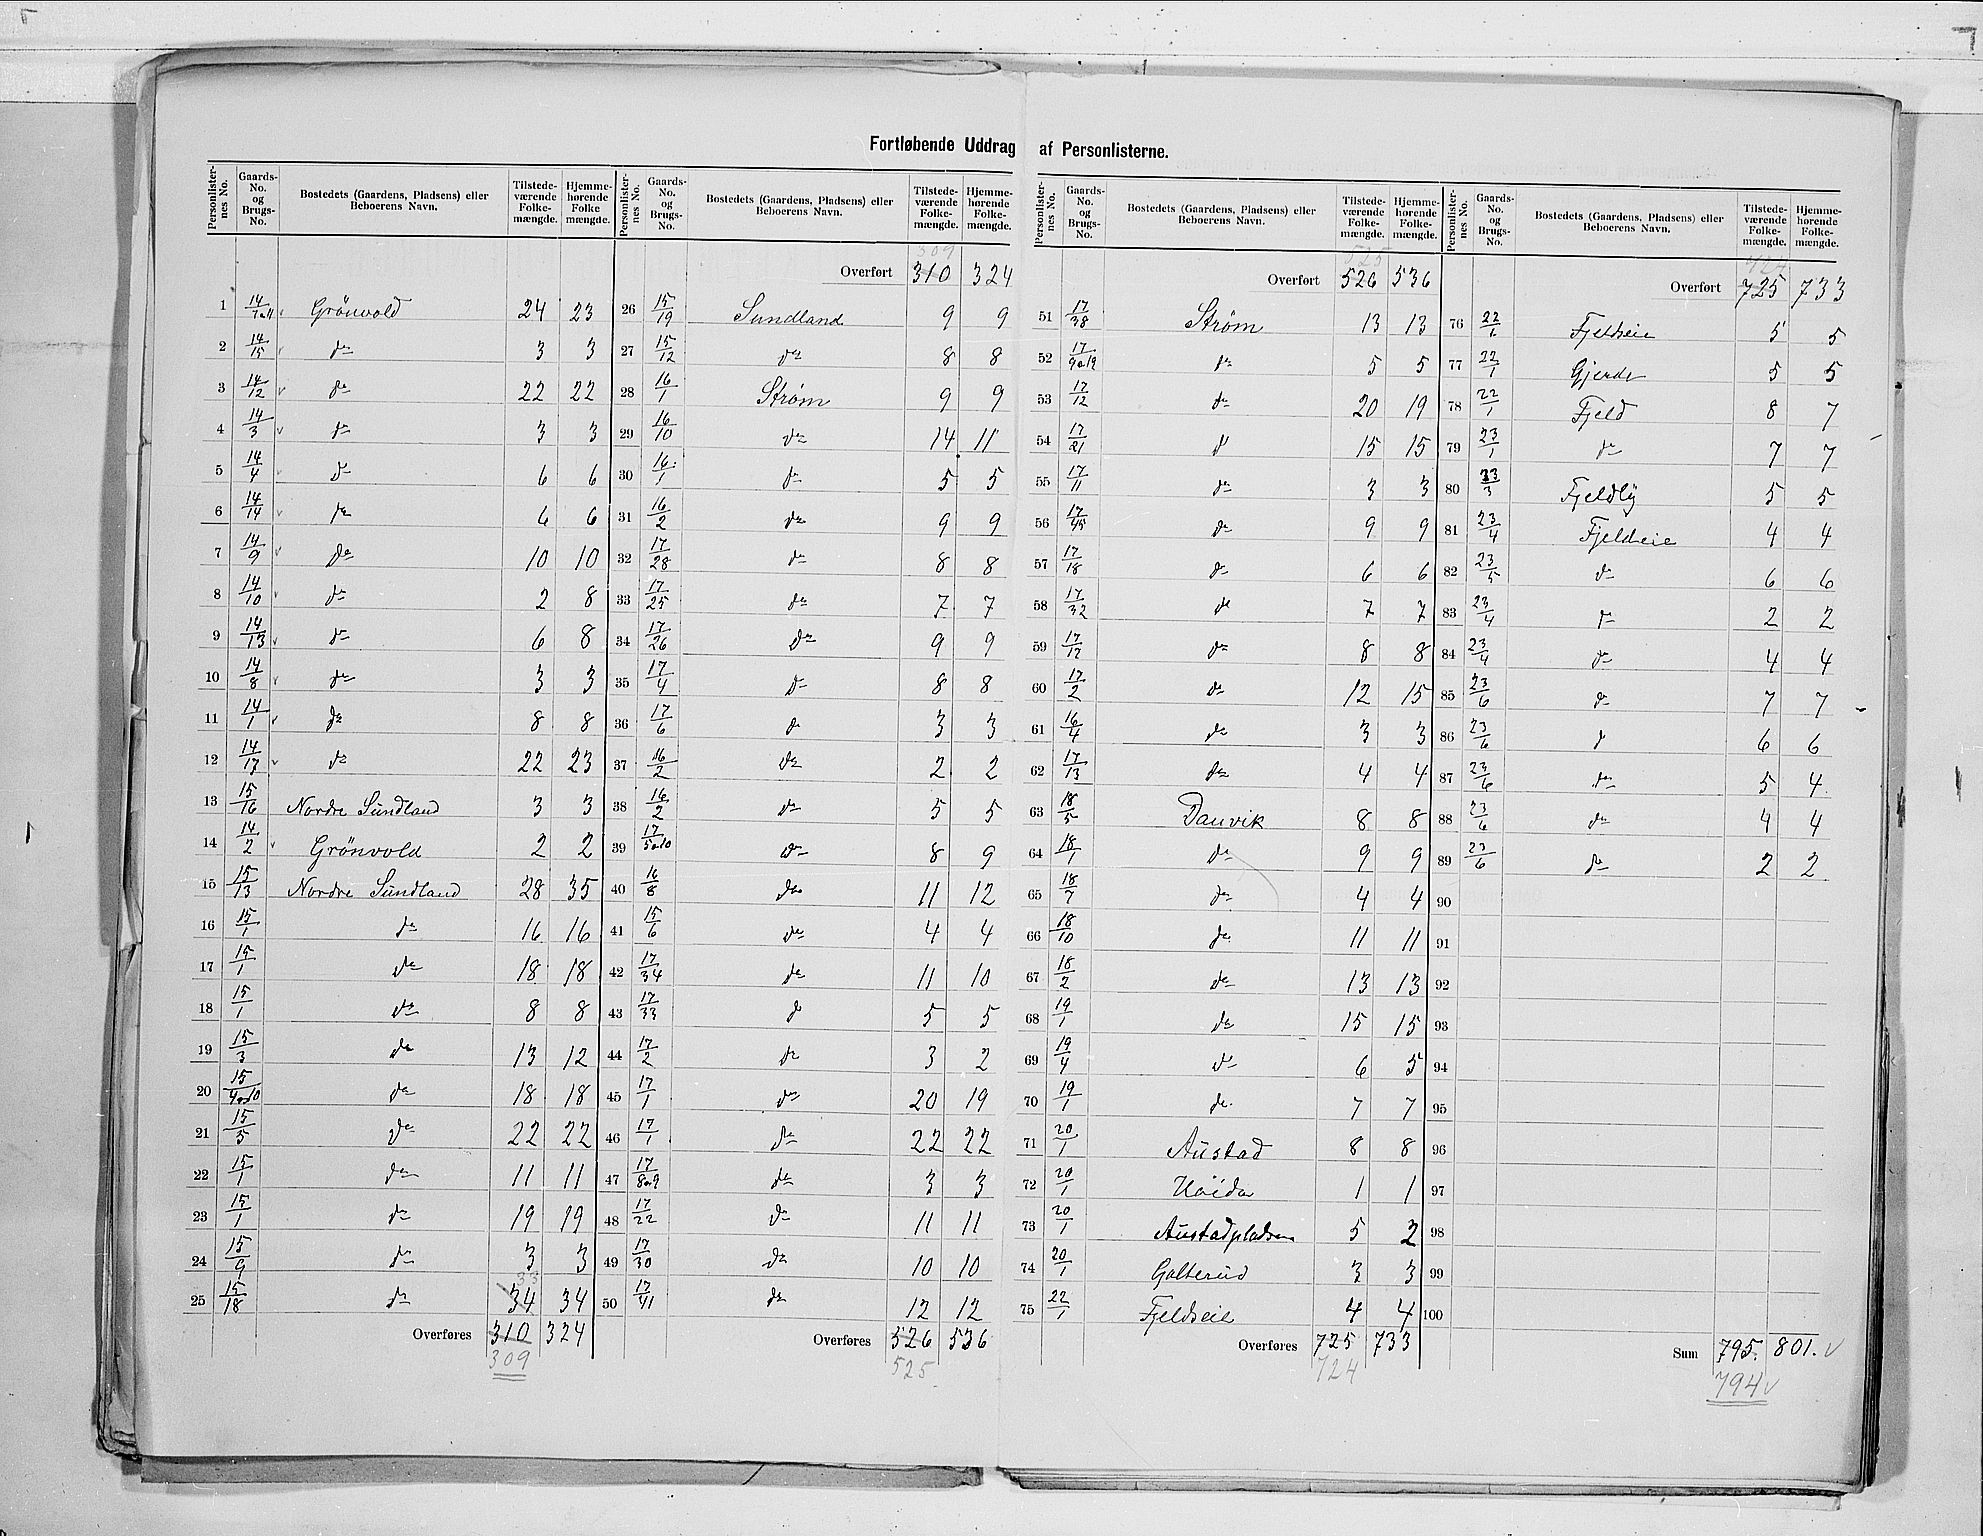 Fortløbende Uddrag af Personlisterne.
Personlister-nes No. Gaards-No. og Brugs-No. Bostedets (Gaardens, Pladsens) eller Beboerens Navn. Tilstede-værende Folke-mængde. Hjemme-hørende Folke mængde.
1 14/1a11 Grönvold 24 23
2 14/15 do 3 3
3 14/12 do 22 22
4 14/3 do 3 3
5 14/4 do 6 6
6 14/14 do 6 6
7 14/9 do 10 10
8 14/10 do 2 8
9 14/13 do 6 8
10 14/8 do 3 3
11 14/1 do 8 8
12 14/17 do 22 23
13 15/16 Nordre Sundland 3 3
14 14/2 Grönvold 2 2
15 15/13 Nordre Sundland 28 35
16 15/1 do 16 16
17 15/1 do 18 18
18 15/1 do 8 8
19 15/3 do 13 12
20 15/4od10 do 18 18
21 15/5 do 22 22
22 15/1 do 11 11
23 15/1 do 19 19
24 15/9 do 3 3
25 15/18 do 34 33 34
Overføres 310 324
309
Personlister-nes No. Gaards-No. og Brugs-No. Bostedets (Gaardens, Pladsens) eller Beboerens Navn. Tilstede-værende Folke-mængde. Hjemme-hørende Folke-mængde.
309
Overført 310 324
26 15/19 Sundland 9 9
27 15/12 do 8 8
28 16/1 Strøm 9 9
29 16/10 do 14 11
30 16/1 do 5 5
31 16/2 do 9 9
32 17/28 do 8 8
33 17/25 do 7 7
34 17/26 do 9 9
35 17/4 do 8 8
36 17/6 do 3 3
37 16/2 do 2 2
38 16/2 do 5 5
39 17/5od10 do 8 9
40 16/8 do 11 12
41 15/6 do 4 4
42 17/34 do 11 10
43 17/33 do 5 5
44 17/2 do 3 2
45 17/1 do 20 19
46 17/1 do 22 22
47 17/8a9 do 3 3
48 17/22 do 11 11
49 17/30 do 10 10
50 17/41 do 12 12
Overføres 526 536
525
Personlister-nes No. Gaards-No. og Brugs-No. Bostedets (Gaardens, Pladsens) eller Beboerens Navn. Tilstede-værende Folke-mængde. Hjemme-hørende Folke-mængde.
525
Overført 526 536
51 17/38 Strøm 13 13
52 17/9a19 do 5 5
53 17/12 do 20 19
54 17/21 do 15 15
55 17/11 do 3 3
56 17/45 do 9 9
57 17/18 do 6 6
58 17/32 do 7 7
59 17/17 do 8 8
60 17/2 do 12 15
61 16/4 do 3 3
62 17/13 do 4 4
63 18/5 Danvik 8 8
64 18/1 do 9 9
65 18/7 do 4 4
66 18/10 do 11 11
67 18/2 do 13 13
68 19/1 do 15 15
69 19/4 do 6 5
70 19/1 do 7 7
71 20/1 Austad 8 8
72 20/1 1 1
73 20/1 Austadpladsen 5 2
74 20/1 Golterud 3 3
75 22/1 Fjeldseie 4 4
Overføres 725 733
724
Personlister-nes No. Gaards-No. og Brugs-No. Bostedets (Gaardens, Pladsens) eller Beboerens Navn. Tilstede-værende Folke-mængde. Hjemme-hørende Folke-mængde.
724
Overført 725 733
76 22/1 Fjeldseie 5 5
77 22/1 Gjerde 5 5
78 22/1 Fjeld 8 7
79 23/1 do 7 7
80 23/3 Fjeldly 5 5
81 23/4 Fjeldseie 4 4
82 23/5 do 6 6
83 23/4 do 2 2
84 23/4 do 4 4
85 23/6 do 7 7
86 23/6 do 6 6
87 23/6 do 5 4
88 23/6 do 4 4
89 23/6 do 2 2
90
91
92
93
94
95
96
97
98
99
100
Sum 795. 801. v
794 v